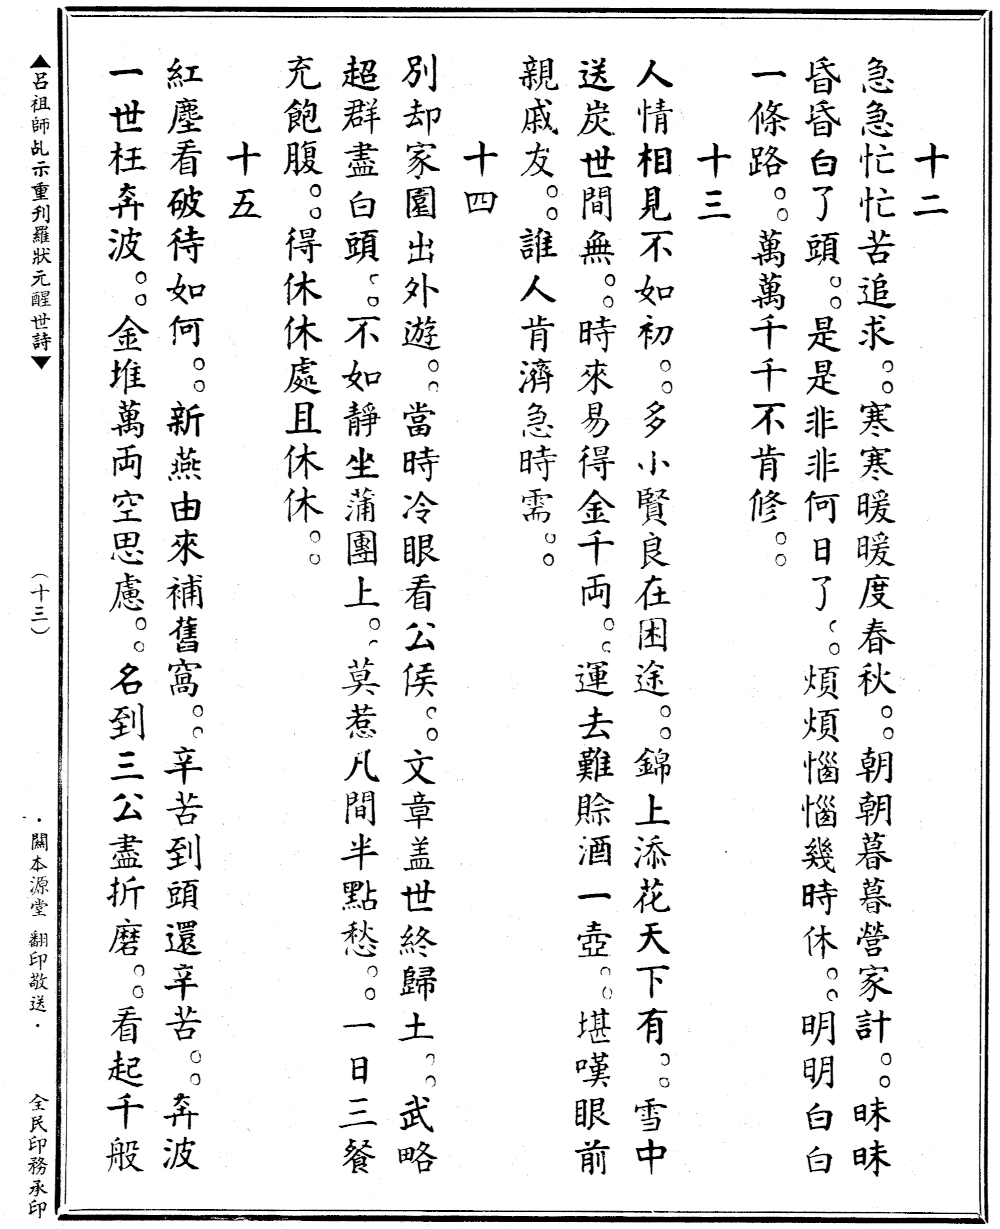 十二
急急忙忙苦追求。。寒寒暖暖度春秋。。朝朝暮暮營家計。。昧昧
昏昏白了頭。。是是非非何日了。。煩煩惱惱幾時休。。明明白白
一條路。。萬萬千千不肯修。。
十三
人情相見不如初。。多小賢良在困途。。錦上添花天下有。。雪中
送炭世間無。。時來易得金千両。。運去難賒酒一壺。。堪嘆眼前
親戚友。。誰人肯濟急時需。。
十四
別却家園出外遊。。當時冷眼看公侯。。文章盖世終歸土。。武略
超群盡白頭。。不如靜坐蒲團上。。莫惹凡間半點愁。。一日三餐
充飽腹。。得休休處且休休。。
十五
紅塵看破待如何。。新燕由來補舊窩。。辛苦到頭還辛苦。。奔波
一世枉奔波。。金堆萬両空思慮。。名到三公盡折磨。。看起千般
▲呂祖師乩示重刋羅狀元醒世詩▼
（十三）
．關本源堂 翻印敬送．
全民印務承印